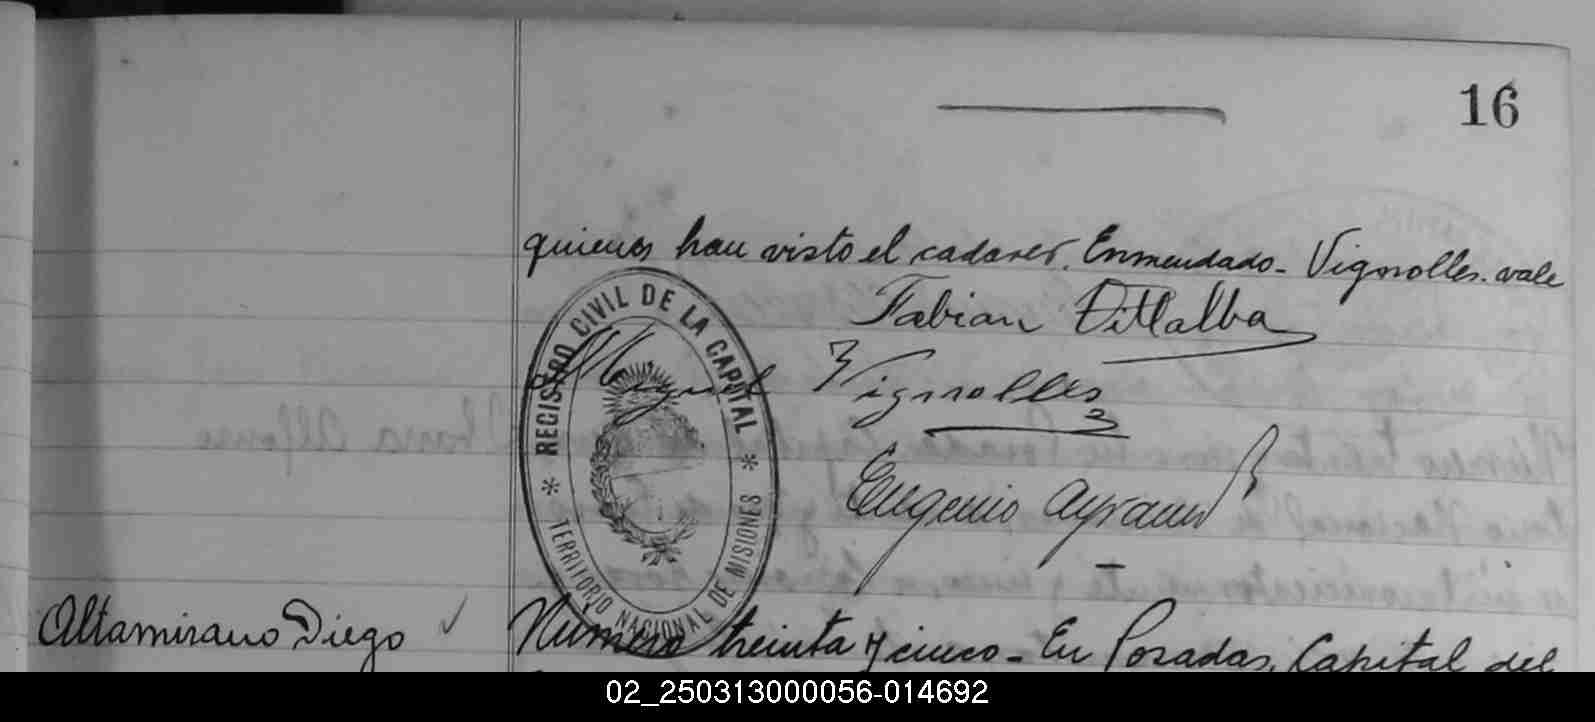 16
quienes han visto el cadaver. Enmendado - Vignolles. vale
Fabian Villalba
Miguel Vignolles
REGISTRO CIVIL DE LA CAPITAL
TERRITORIO NACIONAL DE MISIONES
Eugenio
Altamirano Diego
Número treinta y cinco - En Posadas, Capital del
02_250313000056-014692